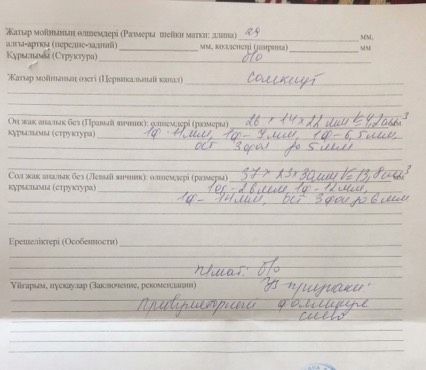 Жатыр мойнының өлшемдері (Размеры шейки матки: длина) 29 мм,
алғы-артқы (передне-задний) мм, көлденеңі (ширина) мм
Құрылымы (Структура) б/о
Жатыр мойнының өзегі (Цервикальный канал) сомкнут
Оң жақ аналық без (Правый яичник): өлшемдері (размеры) 26 × 14 × 22 мм V=4,2 см³
құрылымы (структура) 1ф-11мм, 1ф-7мм, 1ф-6,5мм,
ост 3 фол до 5мм
Сол жақ аналық без (Левый яичник): өлшемдері (размеры) 37 × 23 × 30 мм V=13,8 см³
құрылымы (структура) 1ф-26мм, 1ф-12мм,
1ф- мм, ост 3 фол до 6мм
Ерешеліктері (Особенности)
п/мат: б/о
Ұйғарым, нұсқаулар (Заключение, рекомендации) Уз признаки
фолликула
слева